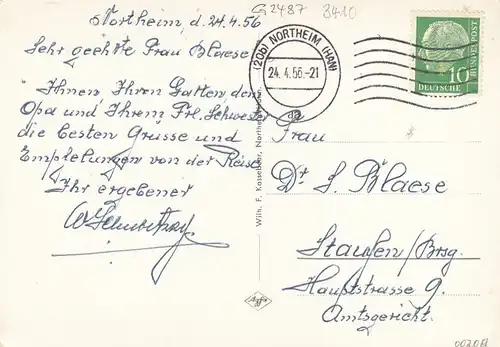 Northeim, d. 24.4.56
Sehr geehrte Frau Blaese
Ihnen, Ihrem Gatten, dem
Opa und Ihrem Frl. Schwester
die besten Grüsse und
Empfehlungen von der Reise
Ihr ergebener
G2487 3410
(20b) NORTHEIM (HAN)
24.4.56.-21
aa
DEUTSCHE BUNDESPOST
10
Wilh. F. Kassebeer, Northeim
Agfa
Frau
Dr. L. Blaese
Staufen/Brsg.
Hauptstrasse 9.
Amtsgericht.